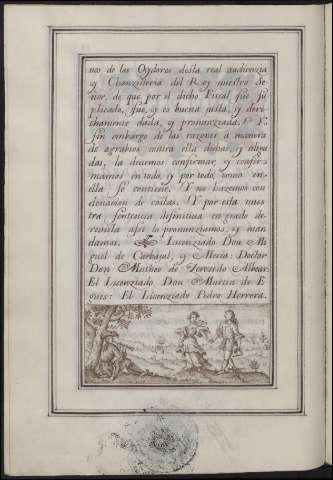 nos de los Oydores desta real audienzia
y Chanzilleria del Rey nuestro Se
ñor, de que por el dicho Fiscal fue su
plicado, fue, y es buena justa, y dere
chamente dada, y pronunziada. Y
sin embargo de las razones a manera
de agrabios contra ella dichas, y alega
das, la devemos confirmar, y confir
mamos en todo, y por todo, como en
ella se contiene, Y no hazemos con
denazion de costas. Y por esta nues
tra sentencia definitiva en grado de
revista assi lo pronunziamos, y man
damos. Licenziado Don Mi
guel de Carbajal, y Mecia: Doctor
Don Matheo de Albear.
El Licenziado Don Martin de E
gues: El Licenziado Pedro Herrera.